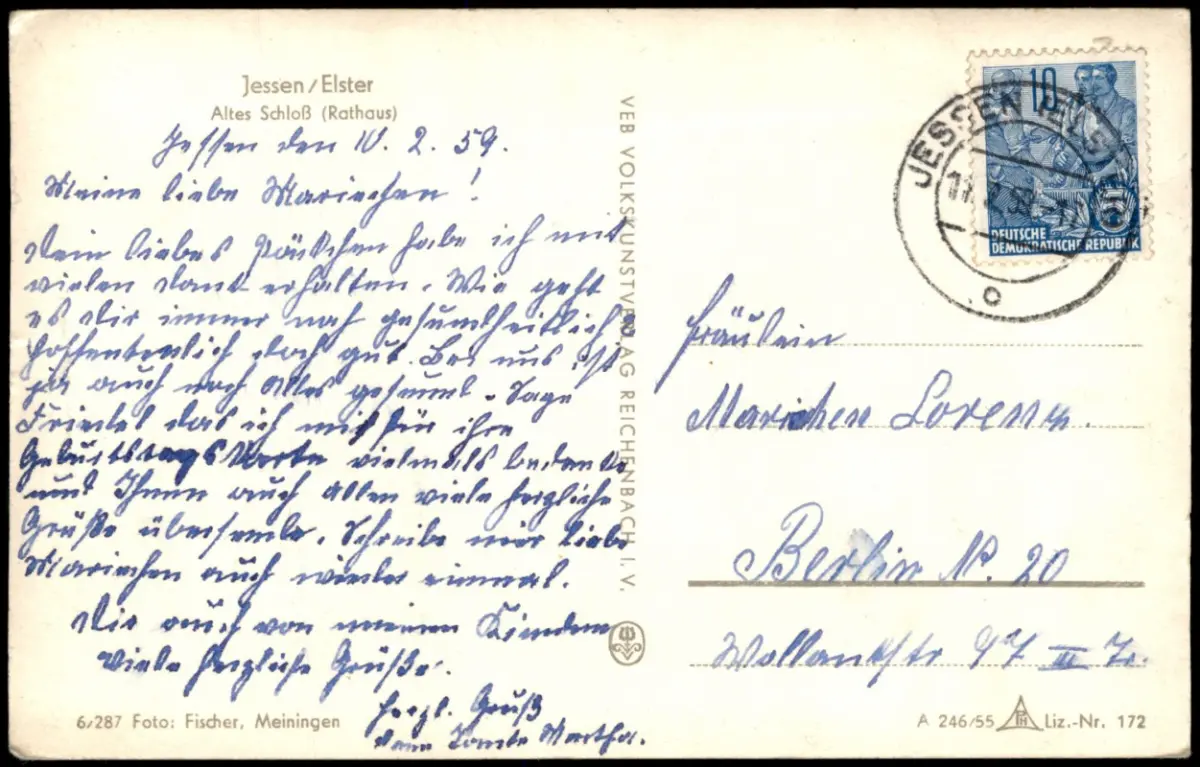 Jessen/Elster
Altes Schloß (Rathaus)
Jessen den 10. 2. 59.
Meine liebe Mariechen!
Dein liebes Päckchen habe ich mit
vielen Dank erhalten. Wie geht
es Dir immer noch gesundheitlich
hoffentenlich doch gut. Bei uns ist
ja auch noch Alles gesund. Sage
Friedel das ich mich für ihre
Geburtstagskarte vielmals bedanke
und Ihnen auch Allen viele herzliche
Grüße übersende. Schreibe mir liebe
Mariechen auch wieder einmal.
Dir auch von meinen Kindern
viele herzliche Grüße.
Herzl. Gruß
Deine Tante Martha.
6/287 Foto: Fischer, Meiningen
VEB VOLKSKUNSTVERLAG REICHENBACH I. V.
10
DEUTSCHE
DEMOKRATISCHE REPUBLIK
JESSEN (ELSTER)
Fräulein
Mariechen Lorenz.
Berlin N. 20
Wollankstr 97 III Tr.
A 246/55 Liz.-Nr. 172